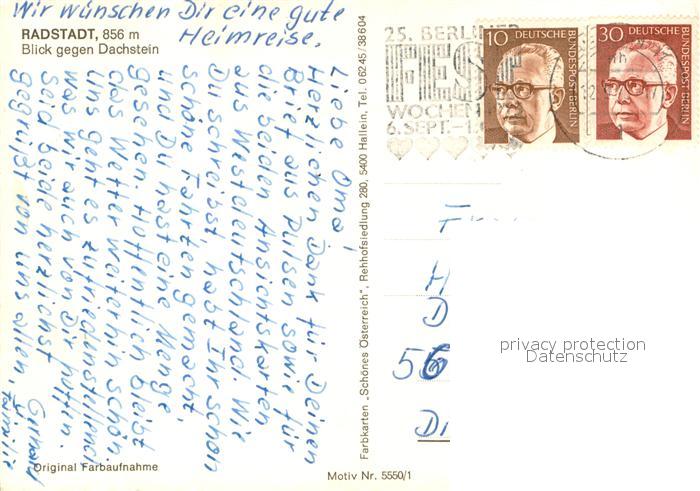 Wir wünschen Dir eine gute
Heimreise.
RADSTADT, 856 m
Blick gegen Dachstein
Liebe Oma,
Herzlichen Dank für Deinen
Brief aus Pulsen sowie für
die beiden Ansichtskarten
aus Westdeutschland. Wie
Du schreibst, habt Ihr schon
schöne Fahrten gemacht,
und Du hast eine Menge
gesehen. Hoffentlich bleibt
das Wetter weiterhin schön.
Uns geht es zufriedenstellend
was wir auch von Dir hoffen.
Seid beide herzlichst
gegrüßt von uns allen,
Familie
Original Farbaufnahme
Farbkarten „Schönes Österreich", Rehhofsiedlung 280, 5400 Hallein, Tel. 06245/38604
Motiv Nr. 5550/1
25. BERLINER
FEST
WOCHEN
6. SEPT.–1
10 DEUTSCHE
BUNDESPOST BERLIN
30 DEUTSCHE
BUNDESPOST BERLIN
F
H
D
56
Di
privacy protection
Datenschutz